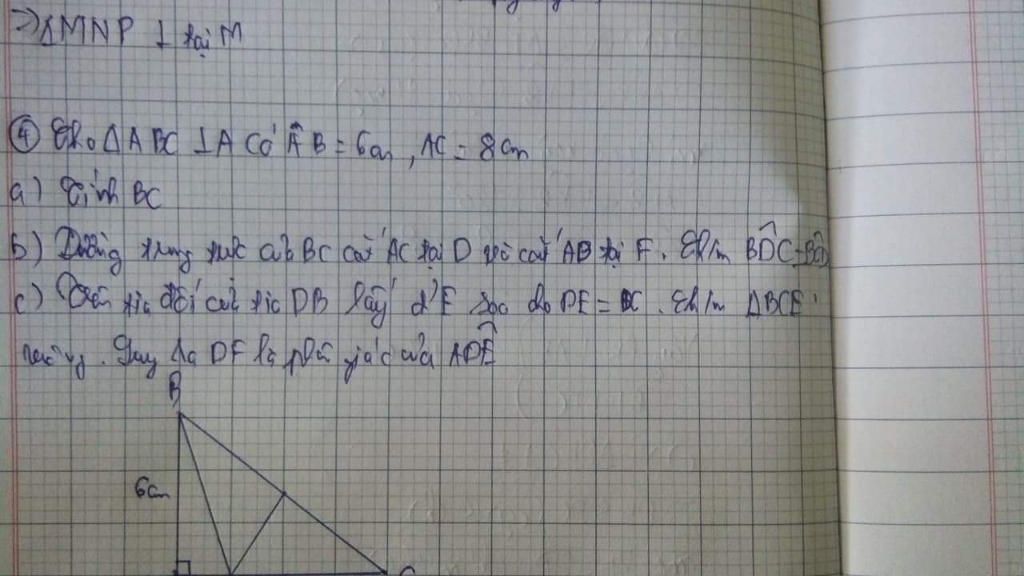 => ΔMNP ⊥ tại M
④ Cho ΔABC ⊥ A Có AB = 6cm, AC = 8cm
a) Tính BC
b) Đường trung trực của BC cắt AC tại D và cắt AB tại F. Ch/m BD̂C
c) Trên tia đối của tia DB lấy đ' E sao cho DE = DC. Ch/m ΔBCE
vuông. Suy ra DF là phân giác của AD̂E
B
6cm
C